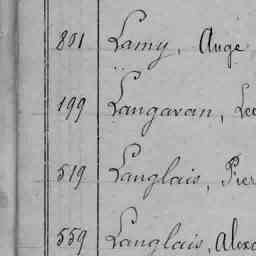 801 Lamy, Ange
199 Langavan, Le
519 Langlais, Pier
559 Langlais, Alex